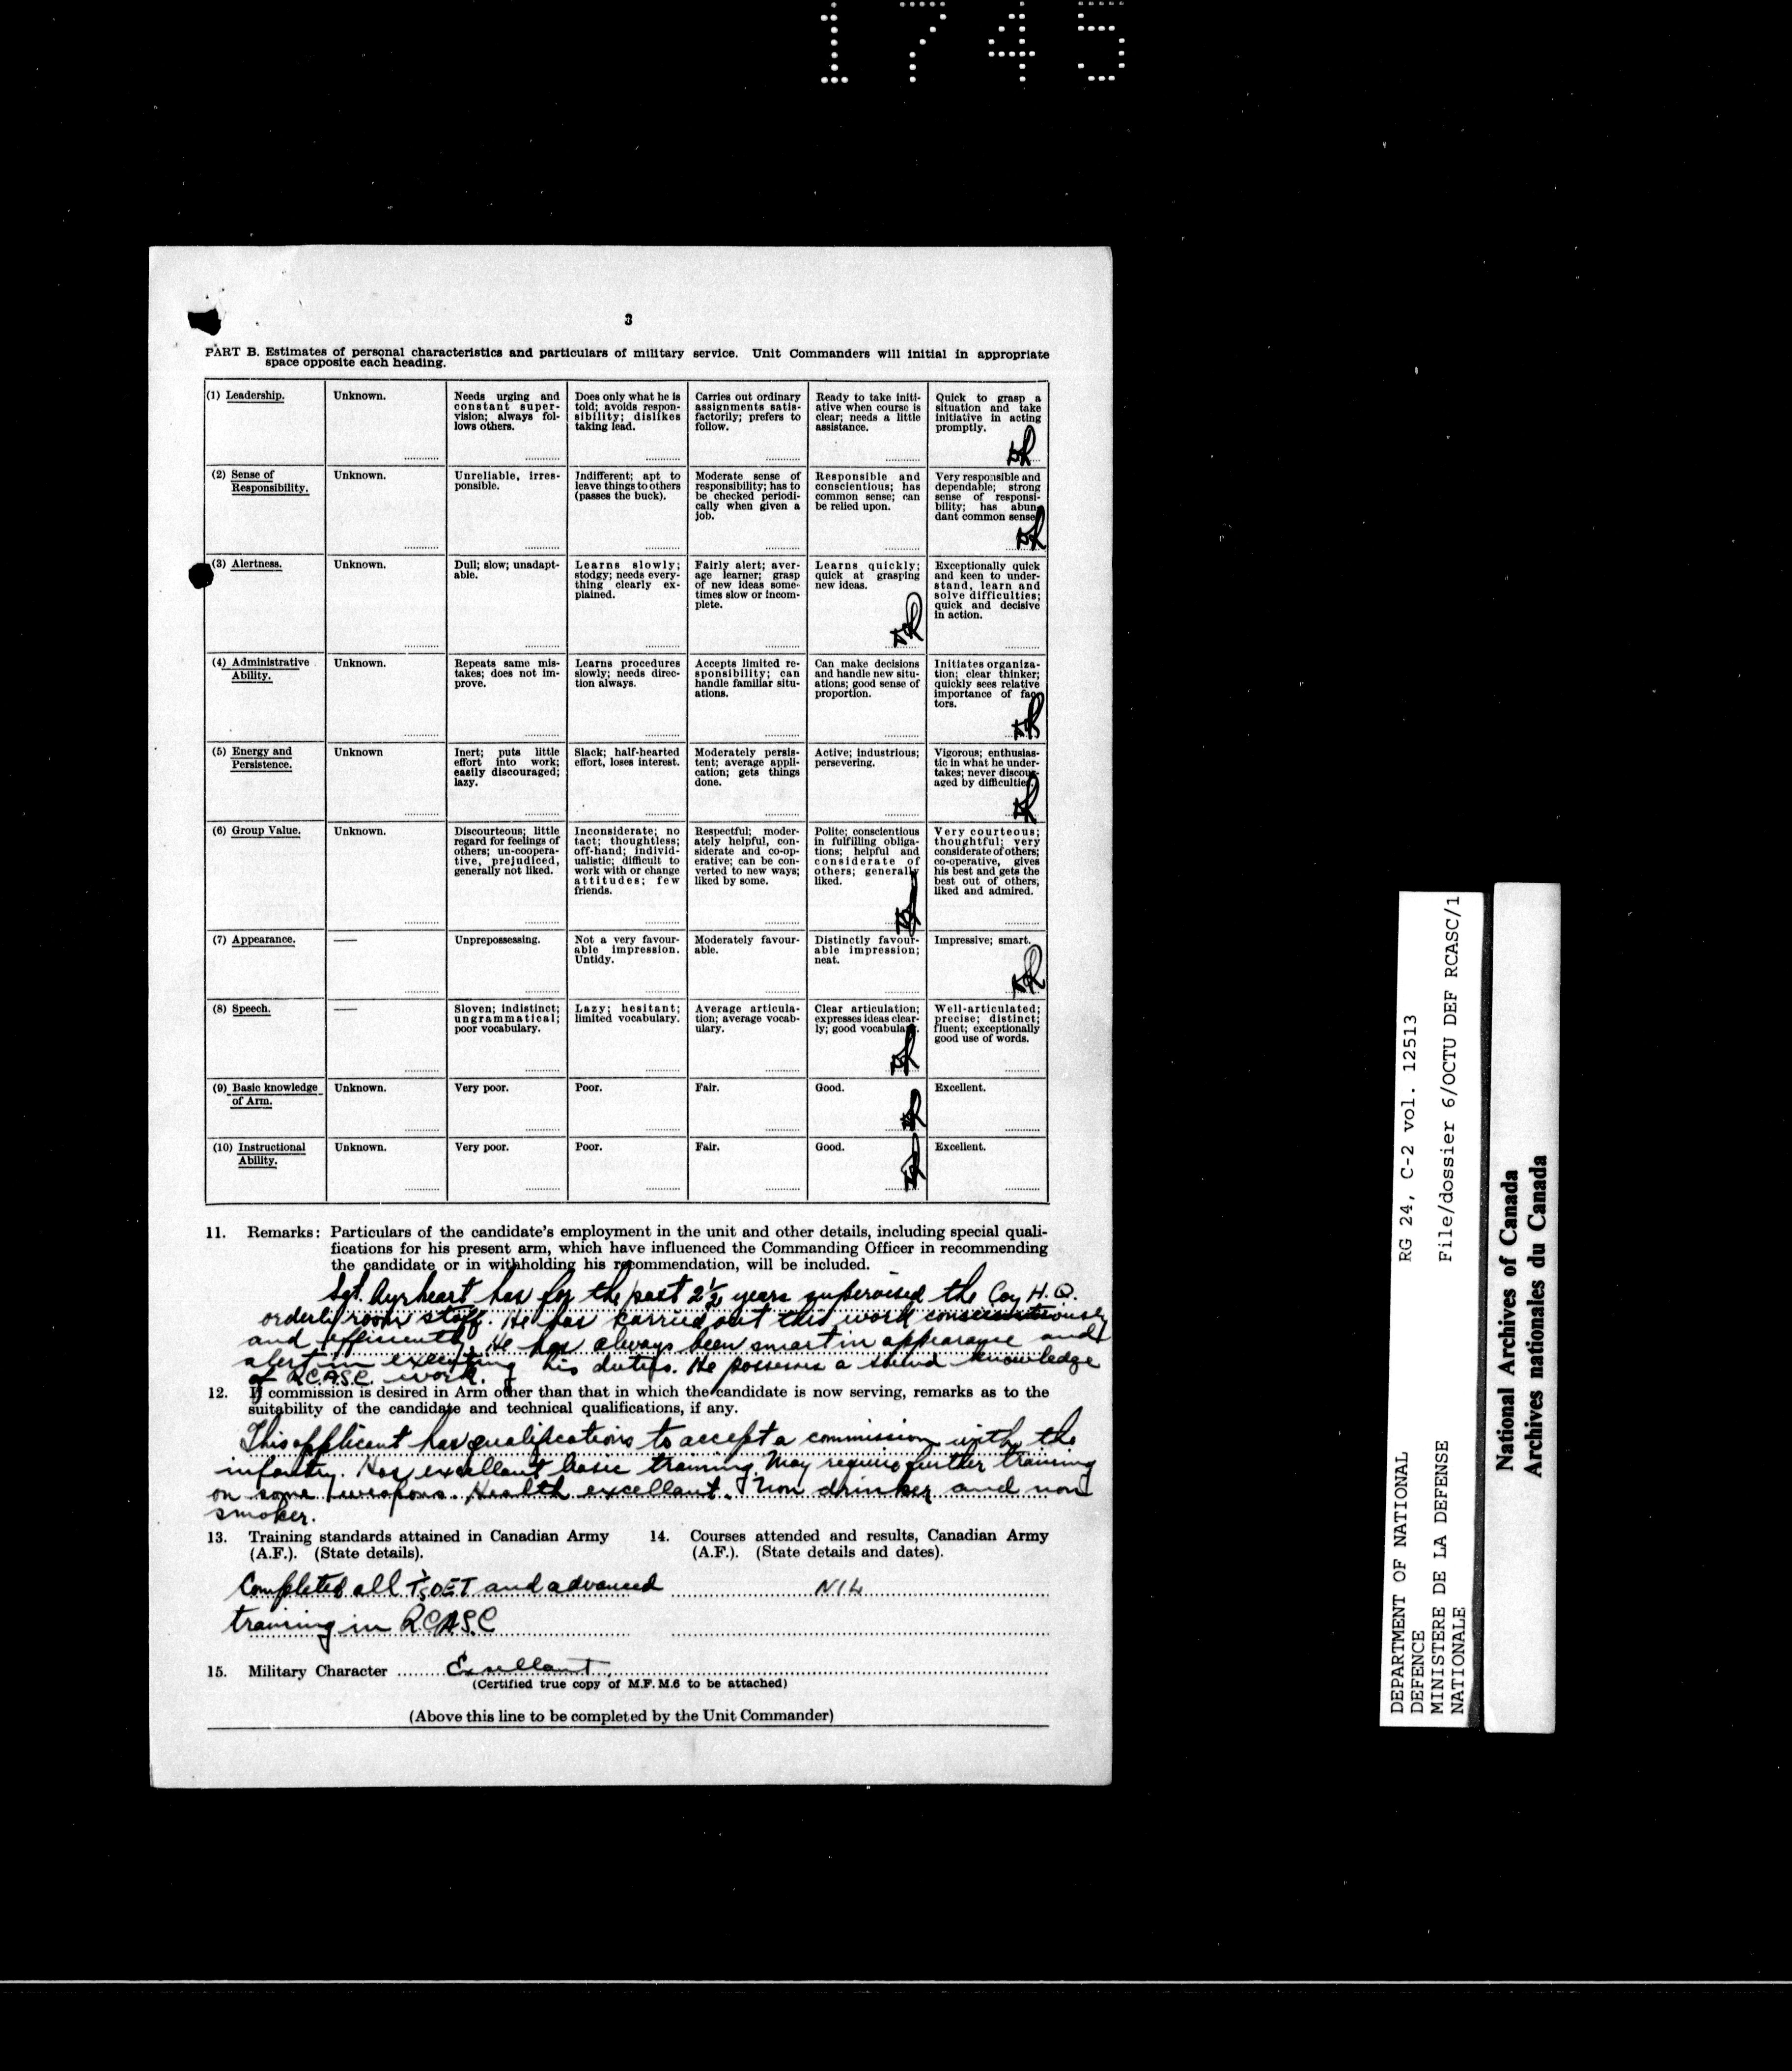 1745
3
PART B. Estimates of personal characteristics and particulars of military service. Unit Commanders will initial in appropriate
space opposite each heading.
(1) Leadership.
Unknown.
Needs urging and
constant super-
vision; always fol-
lows others.
Does only what he is
told; avoids respon-
sibility; dislikes
taking lead.
Carries out ordinary
assignments satis-
factorily; prefers to
follow.
Ready to take initi-
ative when course is
clear; needs a little
assistance.
Quick to grasp a
situation and take
initiative in acting
promptly.
(2) Sense of
Responsibility.
Unknown.
Unreliable, irres-
ponsible.
Indifferent; apt to
leave things to others
(passes the buck).
Moderate sense of
responsibility; has to
be checked periodi-
cally when given a
job.
Responsible and
conscientious; has
common sense; can
be relied upon.
Very responsible and
dependable; strong
sense of responsi-
bility; has abun-
dant common sense
(3) Alertness.
Unknown.
Dull; slow; unadapt-
able.
Learns slowly;
stodgy; needs every-
thing clearly ex-
plained.
Fairly alert; aver-
age learner; grasp
of new ideas some-
times slow or incom-
plete.
Learns quickly;
quick at grasping
new ideas.
Exceptionally quick
and keen to under-
stand, learn and
solve difficulties;
quick and decisive
in action.
(4) Administrative
Ability.
Unknown.
Repeats same mis-
takes; does not im-
prove.
Learns procedures
slowly; needs direc-
tion always.
Accepts limited re-
sponsibility; can
handle familiar situ-
ations.
Can make decisions
and handle new situ-
ations; good sense of
proportion.
Initiates organiza-
tion; clear thinker;
quickly sees relative
importance of fac-
tors.
(5) Energy and
Persistence.
Unknown
Inert; puts little
effort into work;
easily discouraged;
lazy.
Slack; half-hearted
effort, loses interest.
Moderately persis-
tent; average appli-
cation; gets things
done.
Active; industrious;
persevering.
Vigorous; enthusias-
tic in what he under-
takes; never discour-
aged by difficulties.
(6) Group Value.
Unknown.
Discourteous; little
regard for feelings of
others; un-coopera-
tive, prejudiced,
generally not liked.
Inconsiderate; no
tact; thoughtless;
off-hand; individ-
ualistic; difficult to
work with or change
attitudes; few
friends.
Respectful; moder-
ately helpful, con-
siderate and co-op-
erative; can be con-
verted to new ways;
liked by some.
Polite; conscientious
in fulfilling obliga-
tions; helpful and
considerate of
others; generally
liked.
Very courteous;
thoughtful; very
considerate of others;
co-operative, gives
his best and gets the
best out of others,
liked and admired.
(7) Appearance.
—
Unprepossessing.
Not a very favour-
able impression.
Untidy.
Moderately favour-
able.
Distinctly favour-
able impression;
neat.
Impressive; smart.
(8) Speech.
—
Sloven; indistinct;
ungrammatical;
poor vocabulary.
Lazy; hesitant;
limited vocabulary.
Average articula-
tion; average vocab-
ulary.
Clear articulation;
expresses ideas clear-
ly; good vocabulary.
Well-articulated;
precise; distinct;
fluent; exceptionally
good use of words.
(9) Basic knowledge
of Arm.
Unknown.
Very poor.
Poor.
Fair.
Good.
Excellent.
(10) Instructional
Ability.
Unknown.
Very poor.
Poor.
Fair.
Good.
Excellent.
11. Remarks: Particulars of the candidate's employment in the unit and other details, including special quali-
fications for his present arm, which have influenced the Commanding Officer in recommending
the candidate or in withholding his recommendation, will be included.
Sgt. Ayrheart has for the past 2½ years supervised the Coy H.Q.
orderly room staff. He has carried out this work conscientiously
and efficiently. He has always been smart in appearance and
alert in executing his duties. He possesses a sound knowledge
of R.C.A.S.C. work.
12. If commission is desired in Arm other than that in which the candidate is now serving, remarks as to the
suitability of the candidate and technical qualifications, if any.
This applicant has qualifications to accept a commission with the
infantry. Has excellant basic training. May require further training
on some weapons. Health excellant. Non drinker and non
smoker.
13. Training standards attained in Canadian Army
(A.F.). (State details).
Completed all TsOET and advanced
training in R.C.A.S.C
14. Courses attended and results, Canadian Army
(A.F.). (State details and dates).
NIL
15. Military Character Exellant
(Certified true copy of M.F.M.6 to be attached)
(Above this line to be completed by the Unit Commander)
DEPARTMENT OF NATIONAL
DEFENCE
MINISTERE DE LA DEFENSE
NATIONALE
RG 24, C-2 vol. 12513
File/dossier 6/OCTU DEF RCASC/1
National Archives of Canada
Archives nationales du Canada